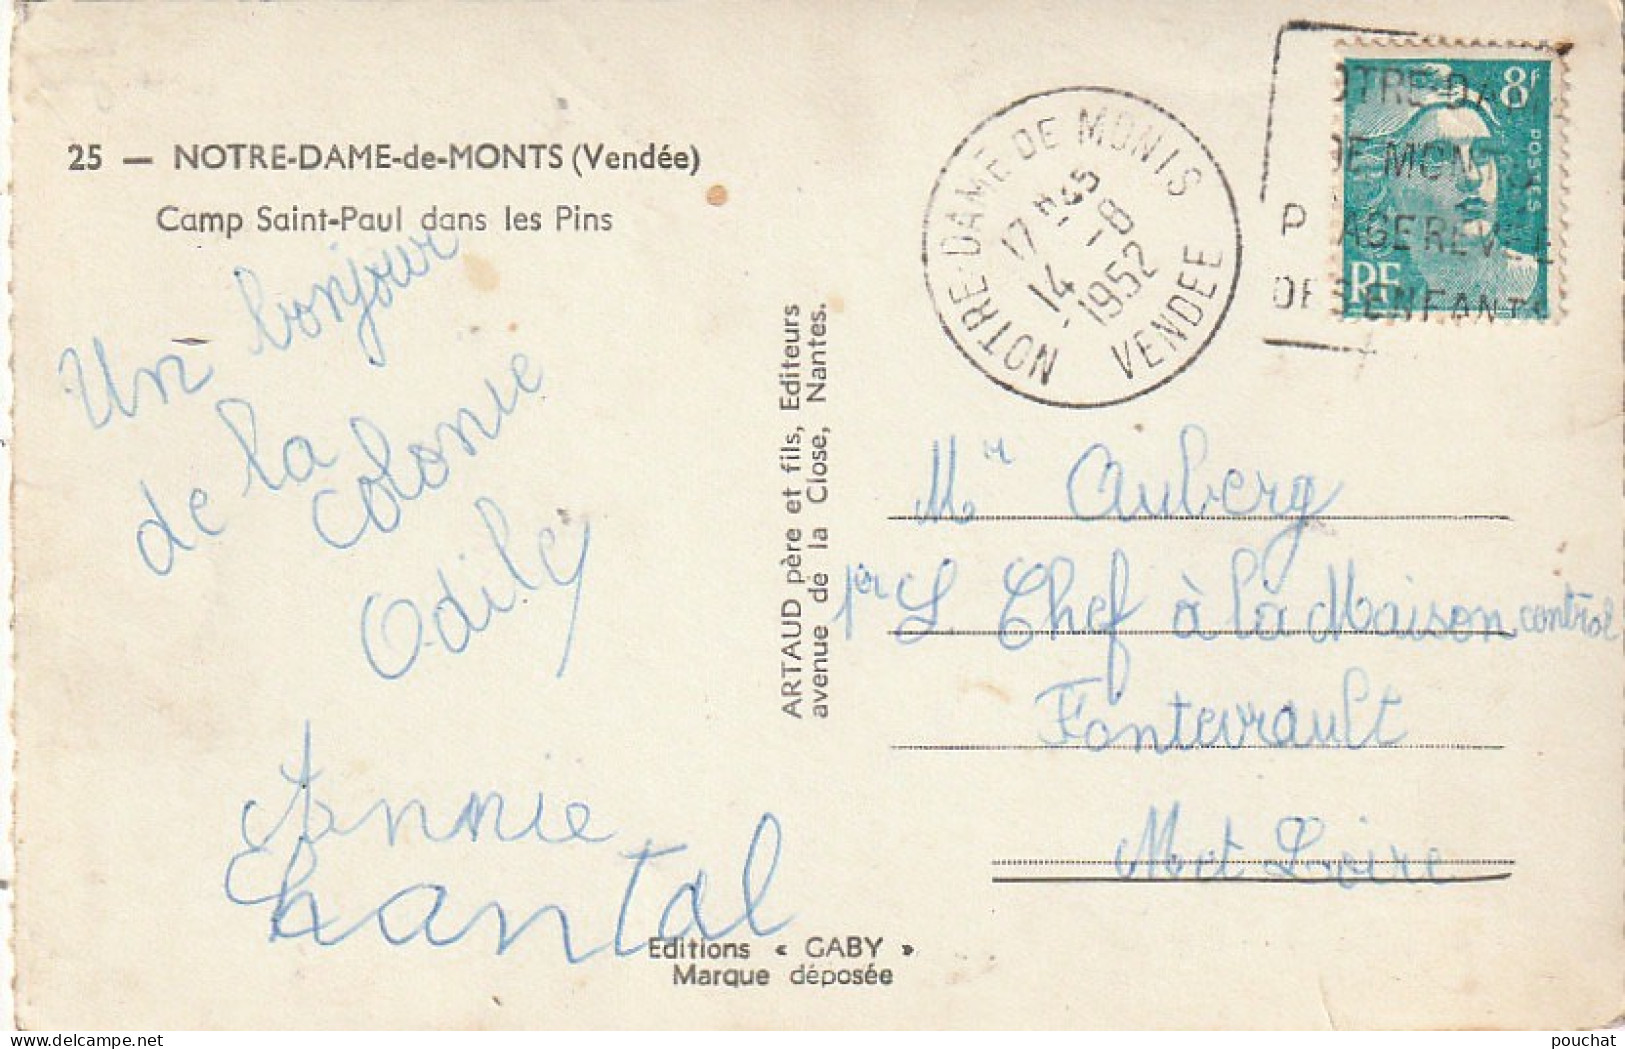 25 — NOTRE-DAME-de-MONTS (Vendée)
Camp Saint-Paul dans les Pins
Un bonjour
de la
colonie
Odile
Annie
Chantal
ARTAUD père et fils, Editeurs
avenue de la Close, Nantes.
Editions « GABY »
Marque déposée
NOTRE-DAME DE MONTS
17 H 45
14 - 8
1952
VENDEE
OTRE DAM
DE MONTS
P AGE REVEE
DES ENFANTS
8f
POSTES
RF
Mr Auberg
S Chef à la Maison central
Fontevrault
M et Loire
pouchat